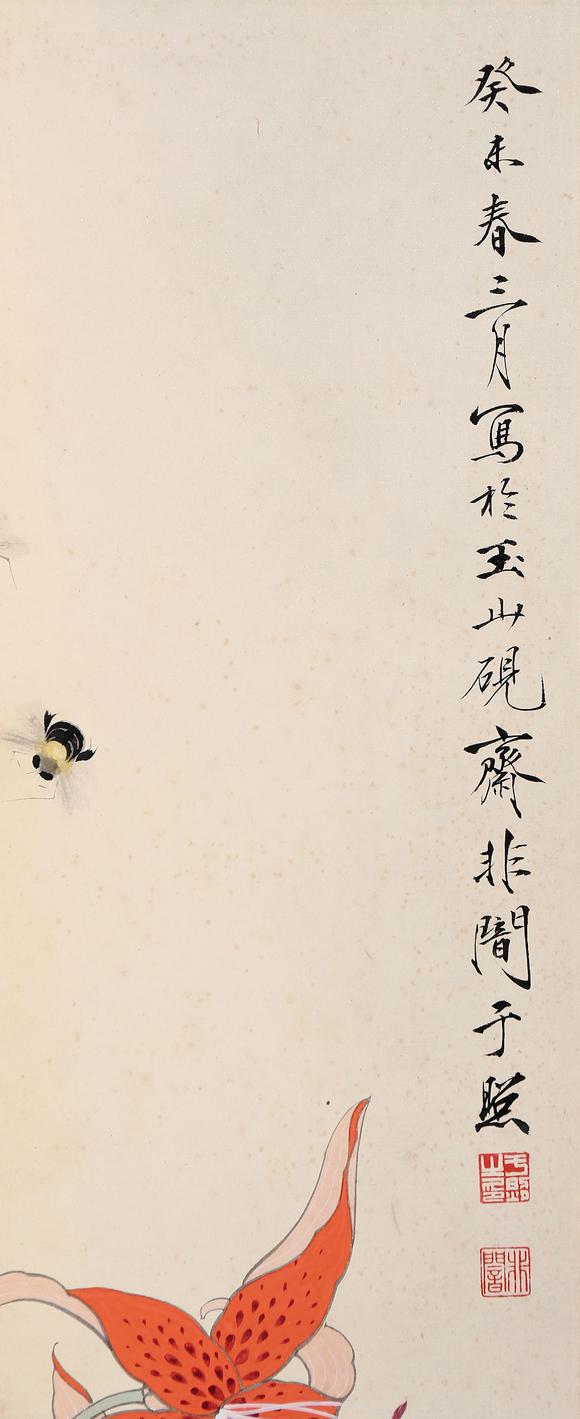 癸未春三月寫於玉山硯齋非闇于照
于照之印
非闇